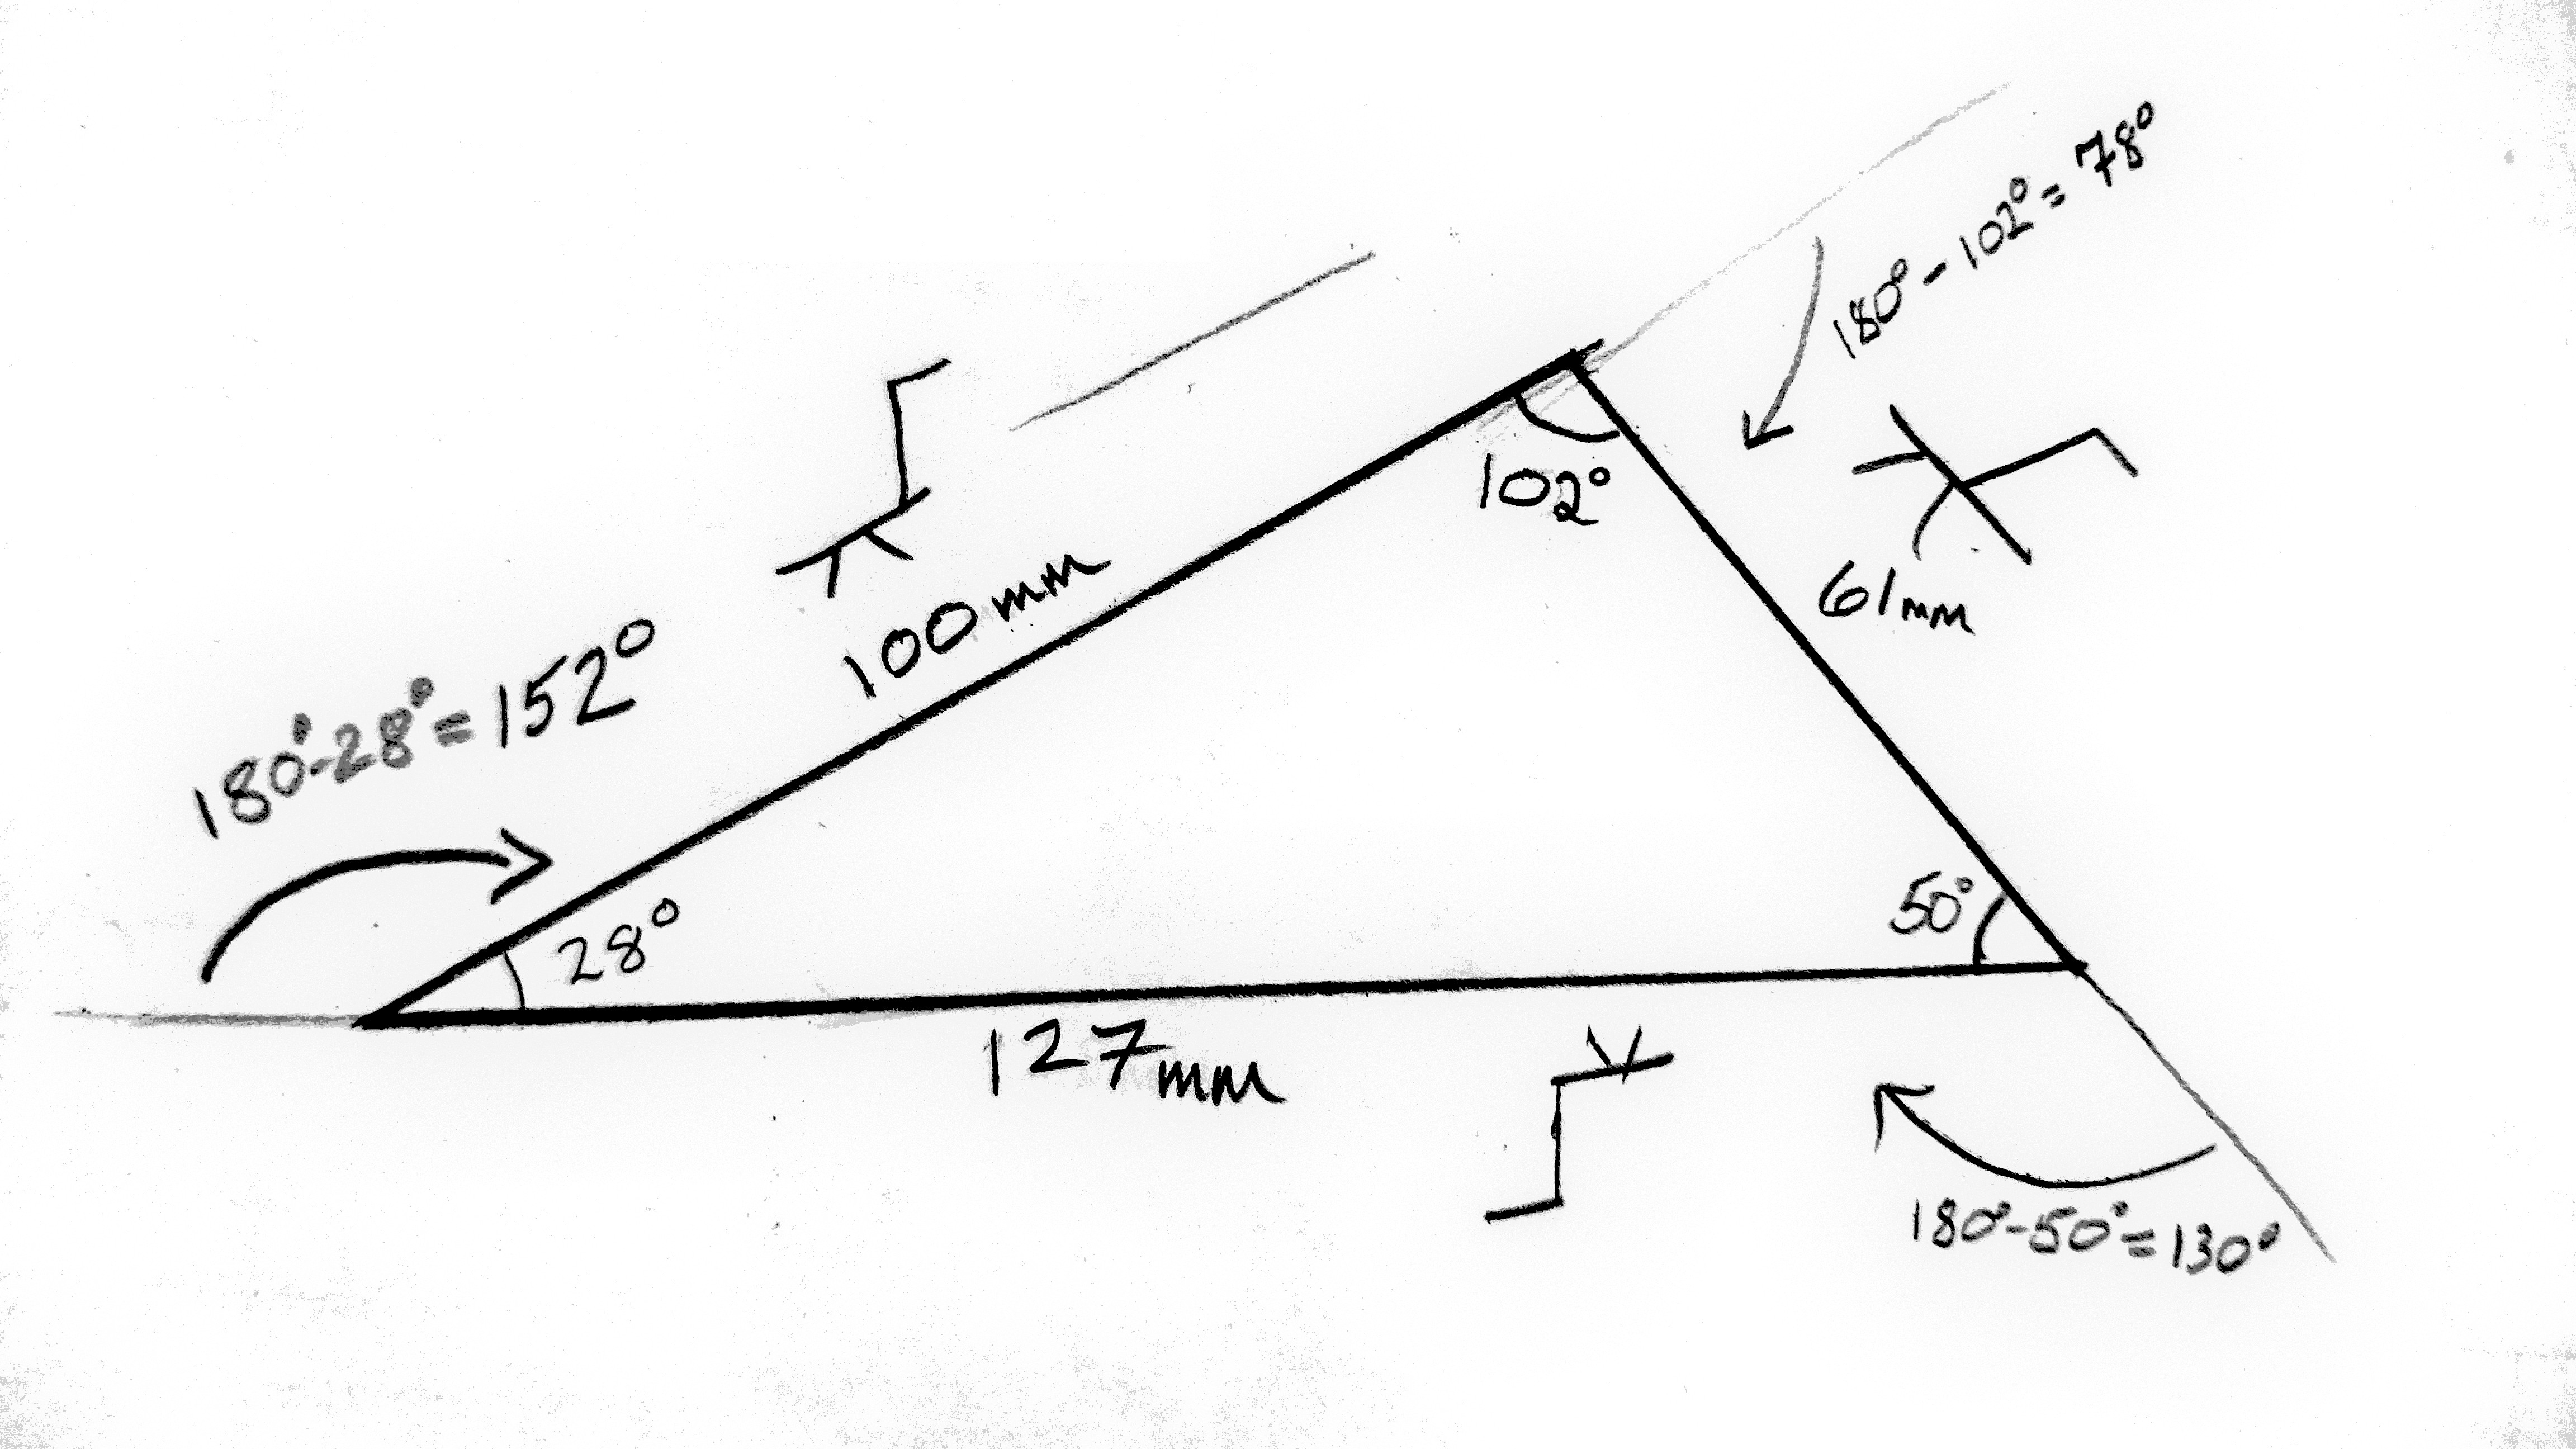 180°-102°=78°
102°
61mm
100mm
180°-28°=152°
28°
50°
127mm
180°-50°=130°